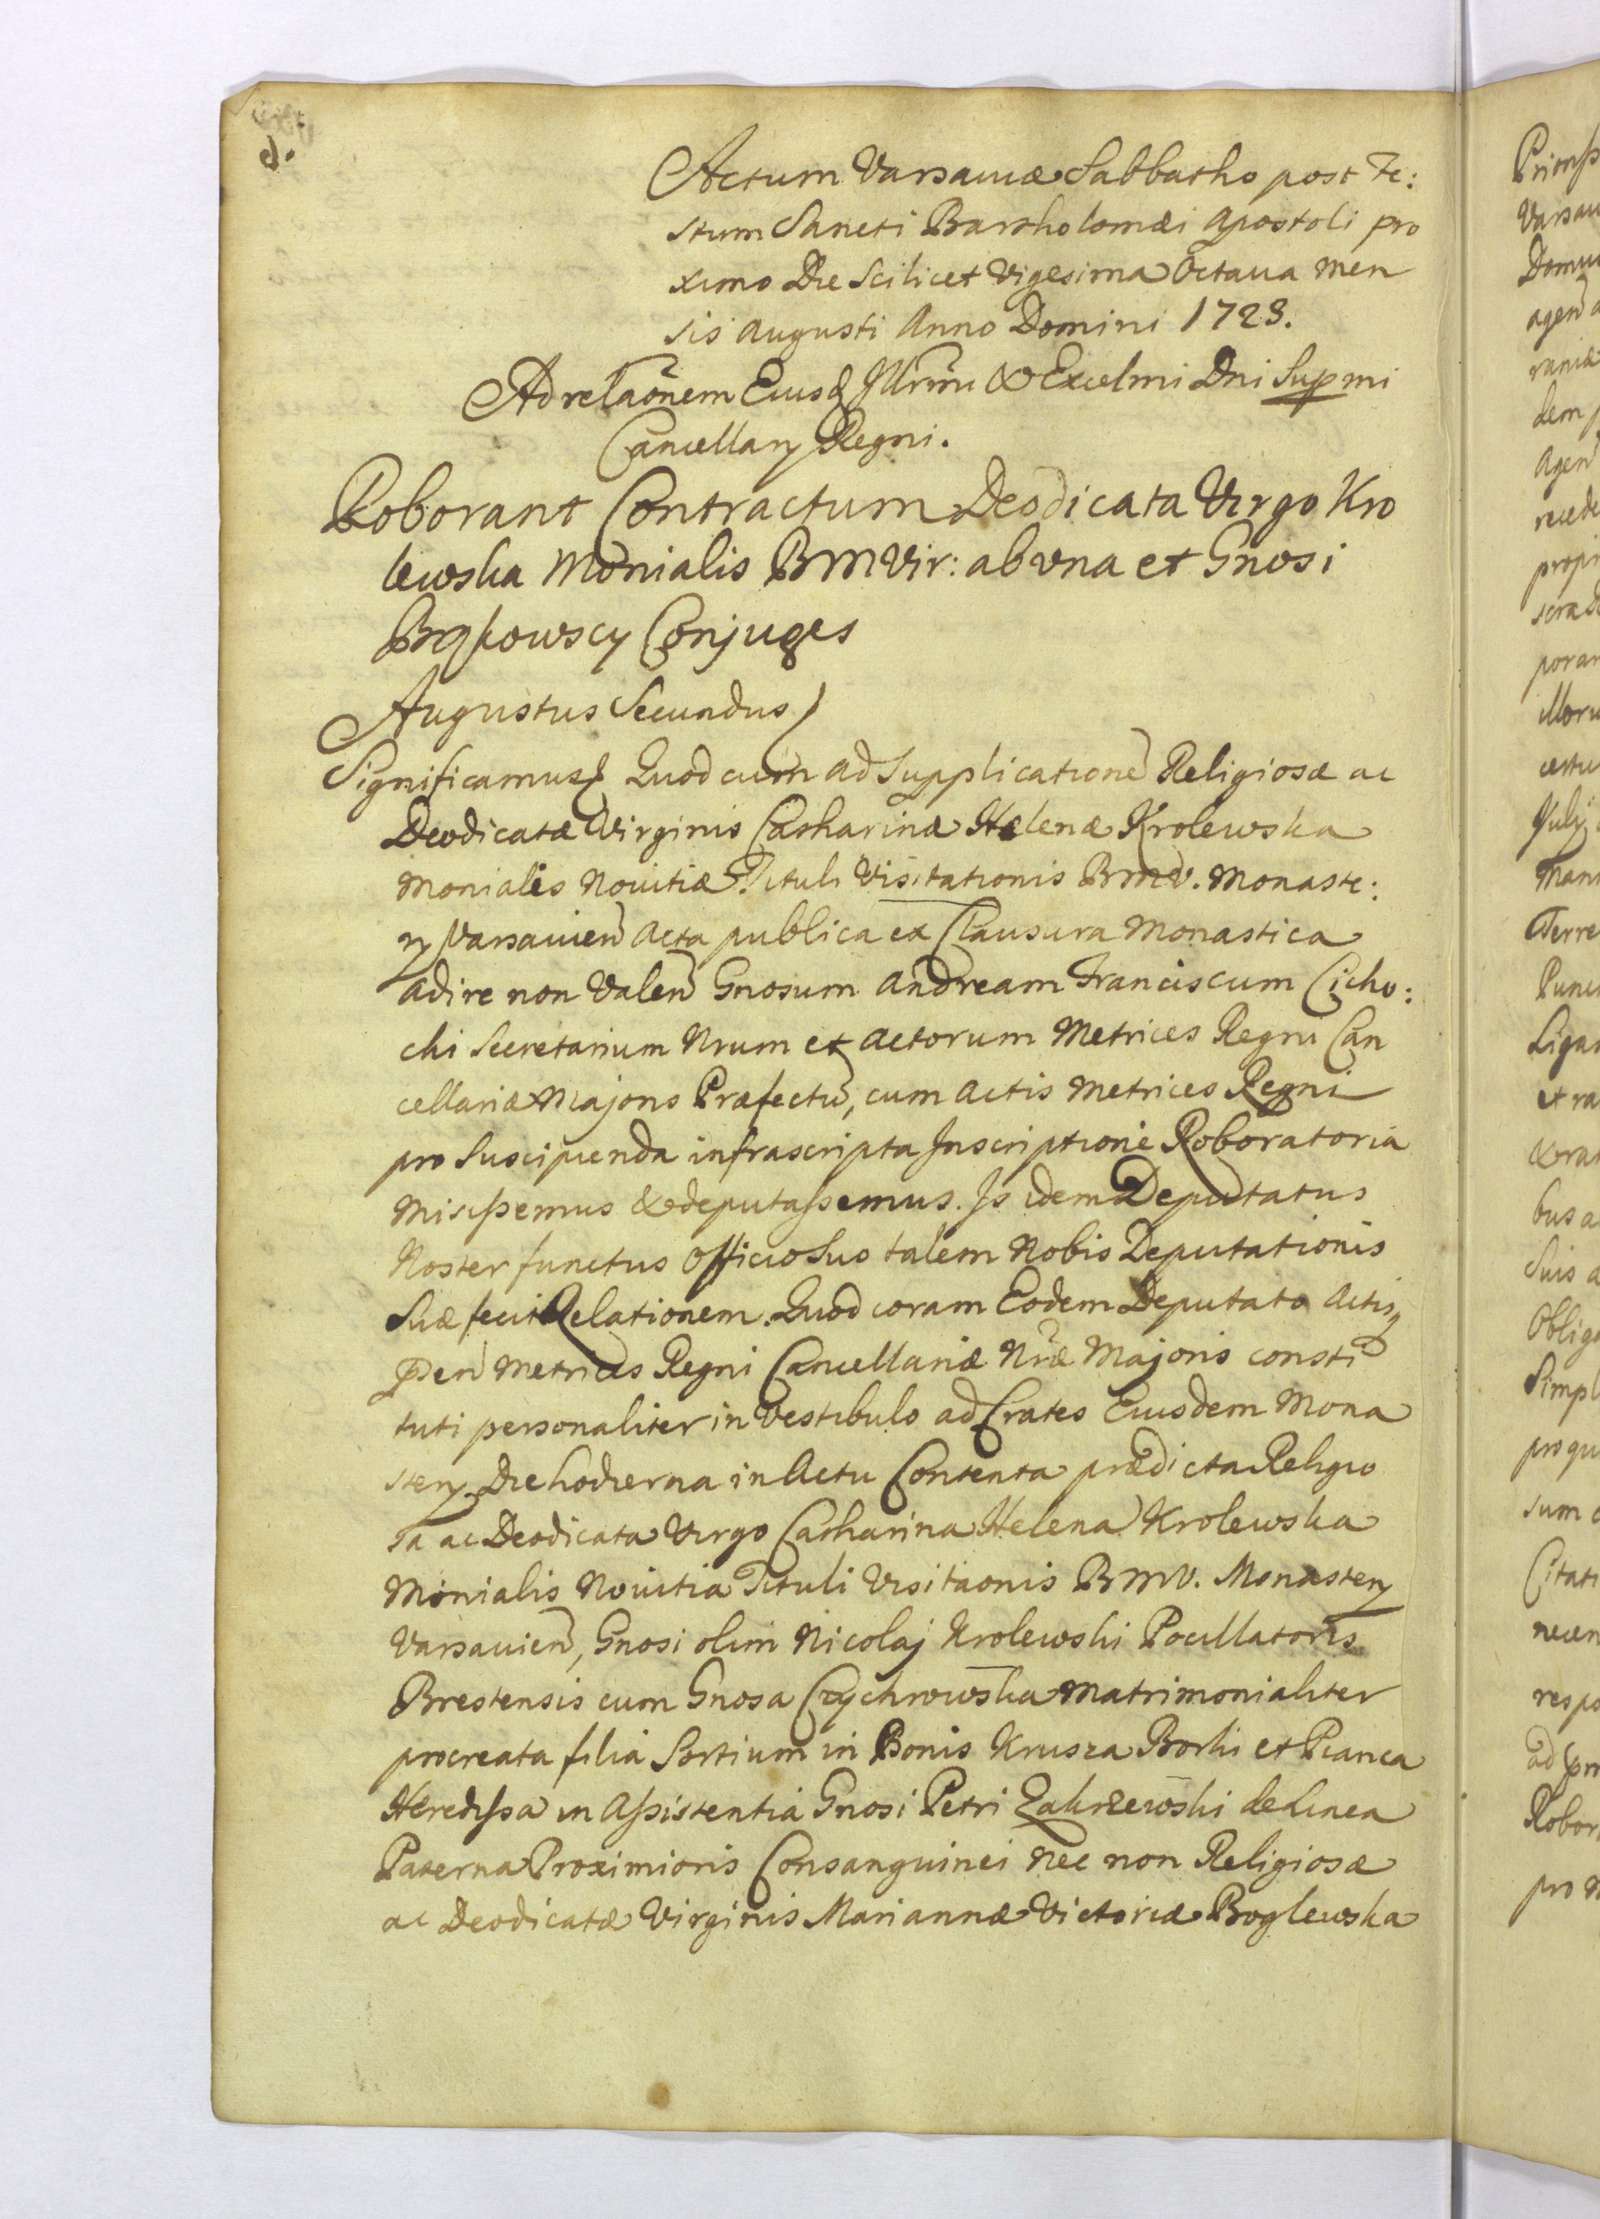 Actum Varsaviæ Sabbatho post Fe:
stum Sancti Bartholomæi Apostoli pro
ximo Die Scilicet Vigesima Octava Men
sis Augusti Anno Domini 1723.
Ad relaõnem Eiusd Illrmi & Excelmi Dni Supmi
Cancellary Regni.
Roborant Contractum Deodicata Virgo Kro
lewska Monialis BMVir: ab una et Gnosi
Conjuges
Augustus Secundus
Significamus Quod cum ad Supplicatione Religiosæ ac
Deodicatæ Virginis Catharinæ Helenæ Krolewska
Monialis Novitiæ Tituli Visitationis BMV. Monaste:
ry Varsavien Acta publica ex Clausura Monastica
adire non Valen Gnosum Andream Franciscum Cicho:
cki Secretarium Nrum et Actorum Metrices Regni Can
cellariæ Majoris Præfectu, cum Actis Metrices Regni
pro Suscipienda infrascripta Inscriptione Roboratoria
Misissemus & deputassemus. Is idem Deputatus
Noster functus Officio Suo talem Nobis Deputationis
Suæ fecit Relationem. Quod coram Eodem Deputato Actisq
Pñ Metrices Regni Cancellariæ Nræ Majoris consti
tuti personaliter in Vestibulo ad Crates Eiusdem Mona
stery Die hodierna in Actu Contenta prædicta Religio
sa ac Deodicata Virgo Catharina Helena Krolewska
Monialis Novitia Tituli Visitaonis BMV. Monastery
Varsavien, Gnosi olim Nicolaj Krolewski Pocillatoris
Brestensis cum Gnosa Czychrowska Matrimonialiter
procreata filia Sortium in Bonis Krusza Borki et Pianca
Heredissa in Assistentia Gnosi Petri Zakrzewski de Linea
Paterna Proximioris Consanguinei nec non Religiosæ
ac Deodicatæ Virginis Mariannæ Victoriæ Boglewska